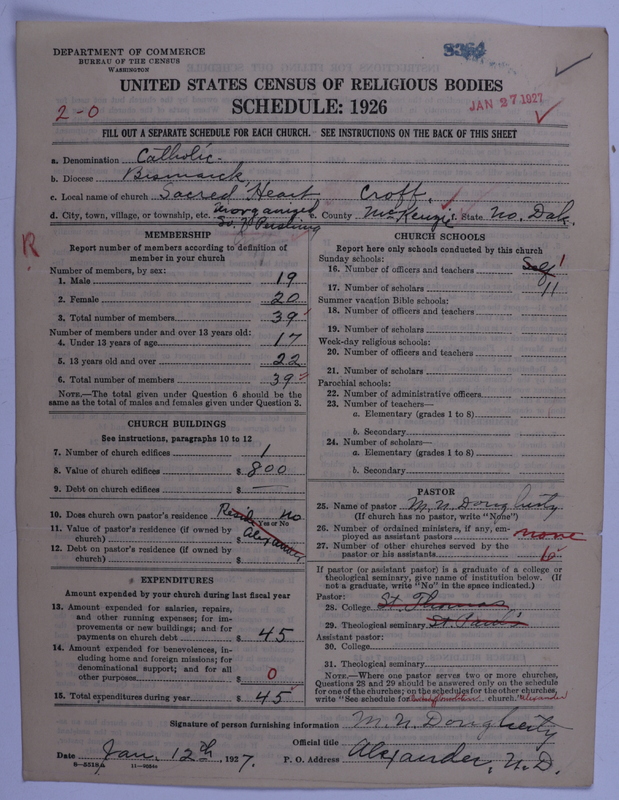 DEPARTMENT OF COMMERCE
BUREAU OF THE CENSUS
WASHINGTON
UNITED STATES CENSUS OF RELIGIOUS BODIES
SCHEDULE: 1926
JAN 27 1927
2-0
FILL OUT A SEPARATE SCHEDULE FOR EACH CHURCH. SEE INSTRUCTIONS ON THE BACK OF THIS SHEET
a. Denomination Catholic
b. Diocese Bismarck
c. Local name of church Sacred Heart Croff.
d. City, town, village, or township, etc. unorganized e. County McKenzie f. State No. Dak.
R
MEMBERSHIP
Report number of members according to definition of
member in your church
Number of members, by sex:
1. Male 19
2. Female 20
3. Total number of members 39
Number of members under and over 13 years old:
4. Under 13 years of age 17
5. 13 years old and over 22
6. Total number of members 39
NOTE.—The total given under Question 6 should be
same as the total of males and females given under Question 3.
CHURCH BUILDINGS
See instructions, paragraphs 10 to 12
7. Number of church edifices 1
8. Value of church edifices $ 800
9. Debt on church edifices $ —
10. Does church own pastor's residence no
Yes or No
11. Value of pastor's residence (if owned by
church) $ Alexander
12. Debt on pastor's residence (if owned by
church) $
EXPENDITURES
Amount expended by your church during last fiscal year
13. Amount expended for salaries, repairs,
and other running expenses; for im-
provements or new buildings; and for
payments on church debt $ 45
14. Amount expended for benevolences, in-
cluding home and foreign missions; for
denominational support; and for all
other purposes $ 0
15. Total expenditures during year $ 45
CHURCH SCHOOLS
Report here only schools conducted by this church
Sunday schools:
16. Number of officers and teachers Self 1
17. Number of scholars 11
Summer vacation Bible schools:
18. Number of officers and teachers
19. Number of scholars
Week-day religious schools:
20. Number of officers and teachers
21. Number of scholars
Parochial schools:
22. Number of administrative officers
23. Number of teachers—
a. Elementary (grades 1 to 8)
b. Secondary
24. Number of scholars—
a. Elementary (grades 1 to 8)
b. Secondary
PASTOR
25. Name of pastor M. N. Dougherty
(If church has no pastor, write "None")
26. Number of ordained ministers, if any, em-
ployed as assistant pastors none
27. Number of other churches served by the
pastor or his assistants 6
If pastor (or assistant pastor) is a graduate of a college or
theological seminary, give name of institution below. (If
not a graduate, write "No" in the space indicated.)
Pastor:
28. College St. Thomas
29. Theological seminary St. Paul's
Assistant pastor:
30. College
31. Theological seminary
NOTE.—Where one pastor serves two or more churches,
Questions 28 and 29 should be answered only on the schedule
for one of the churches; on the schedules for the other churches,
write "See schedule for church." Alexander
Signature of person furnishing information M. N. Dougherty
Official title
Date Jan. 12th, 1927. P. O. Address Alexander, N. D.
8-5518a 11-9954